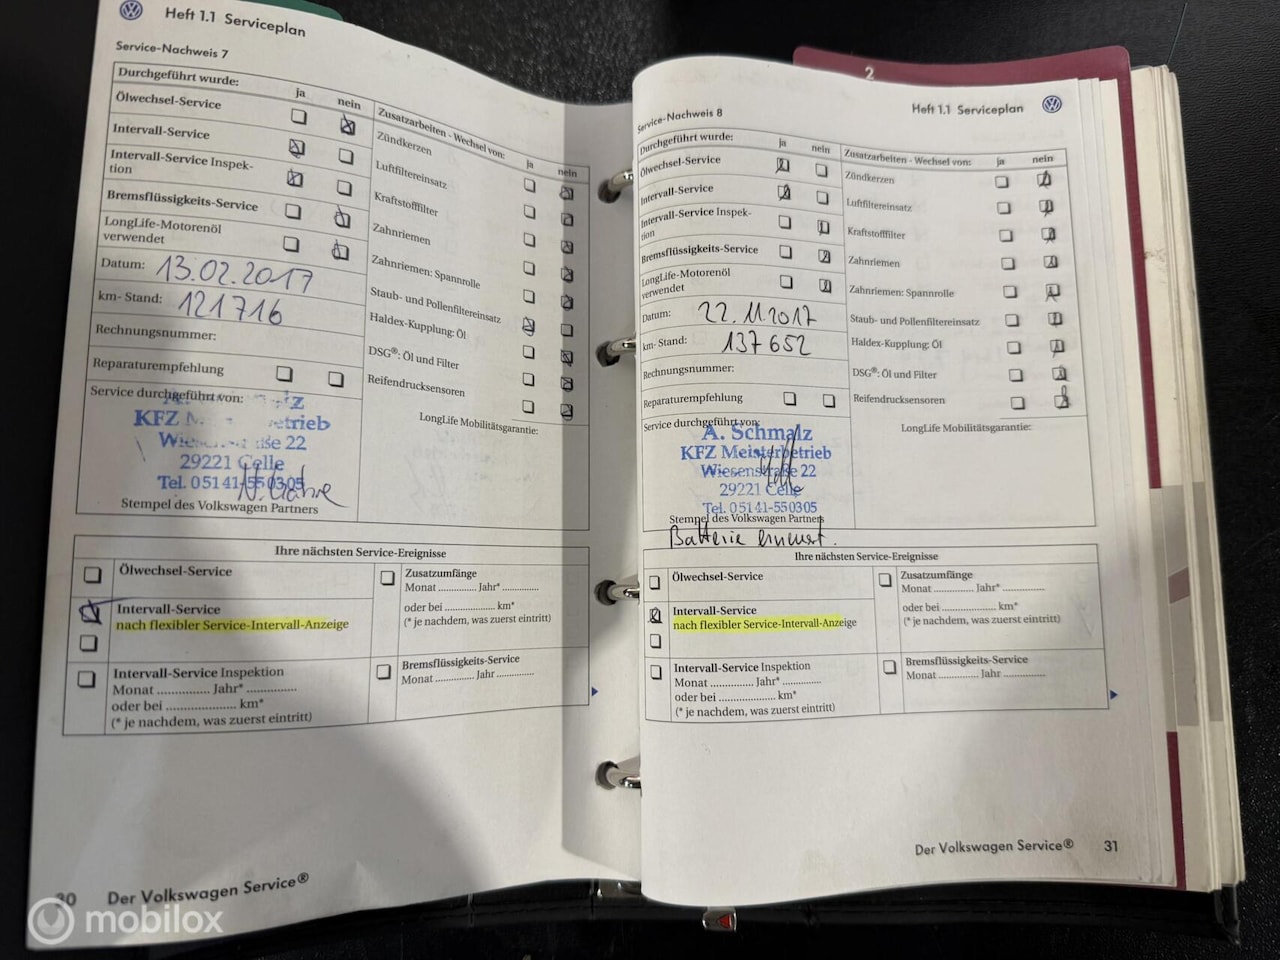 Heft 1.1 Serviceplan
Service-Nachweis 7
Durchgeführt wurde:
ja
nein
Ölwechsel-Service
Intervall-Service
Intervall-Service Inspek-
tion
Bremsflüssigkeits-Service
LongLife-Motorenöl
verwendet
Datum: 13.02.2017
km- Stand: 121716
Rechnungsnummer:
Reparaturempfehlung
Service durchgeführt von:
KFZ
29221 Celle
Tel. 05141-550305
Stempel des Volkswagen Partners
Zusatzarbeiten - Wechsel von:
ja
nein
Zündkerzen
Luftfiltereinsatz
Kraftstofffilter
Zahnriemen
Zahnriemen: Spannrolle
Staub- und Pollenfiltereinsatz
Haldex-Kupplung: Öl
DSG®: Öl und Filter
Reifendrucksensoren
LongLife Mobilitätsgarantie:
Ihre nächsten Service-Ereignisse
Ölwechsel-Service
Intervall-Service
nach flexibler Service-Intervall-Anzeige
Intervall-Service Inspektion
Monat ............... Jahr* ...............
oder bei ..................... km*
(* je nachdem, was zuerst eintritt)
Zusatzumfänge
Monat ............. Jahr* .............
oder bei .................... km*
(* je nachdem, was zuerst eintritt)
Bremsflüssigkeits-Service
Monat ............. Jahr .............
30 Der Volkswagen Service®
2
Heft 1.1 Serviceplan
Service-Nachweis 8
Durchgeführt wurde:
ja
nein
Ölwechsel-Service
Intervall-Service
Intervall-Service Inspek-
tion
Bremsflüssigkeits-Service
LongLife-Motorenöl
verwendet
Datum: 22.11.2017
km- Stand: 137652
Rechnungsnummer:
Reparaturempfehlung
Service durchgeführt von:
A. Schmalz
KFZ Meisterbetrieb
Wiesenstraße 22
29221 Celle
Tel. 05141-550305
Stempel des Volkswagen Partners
Batterie erneuert.
Zusatzarbeiten - Wechsel von:
ja
nein
Zündkerzen
Luftfiltereinsatz
Kraftstofffilter
Zahnriemen
Zahnriemen: Spannrolle
Staub- und Pollenfiltereinsatz
Haldex-Kupplung: Öl
DSG®: Öl und Filter
Reifendrucksensoren
LongLife Mobilitätsgarantie:
Ihre nächsten Service-Ereignisse
Ölwechsel-Service
Intervall-Service
nach flexibler Service-Intervall-Anzeige
Intervall-Service Inspektion
Monat ............... Jahr* ...............
oder bei ..................... km*
(* je nachdem, was zuerst eintritt)
Zusatzumfänge
Monat ............. Jahr* .............
oder bei .................... km*
(* je nachdem, was zuerst eintritt)
Bremsflüssigkeits-Service
Monat ............. Jahr .............
Der Volkswagen Service® 31
mobilox